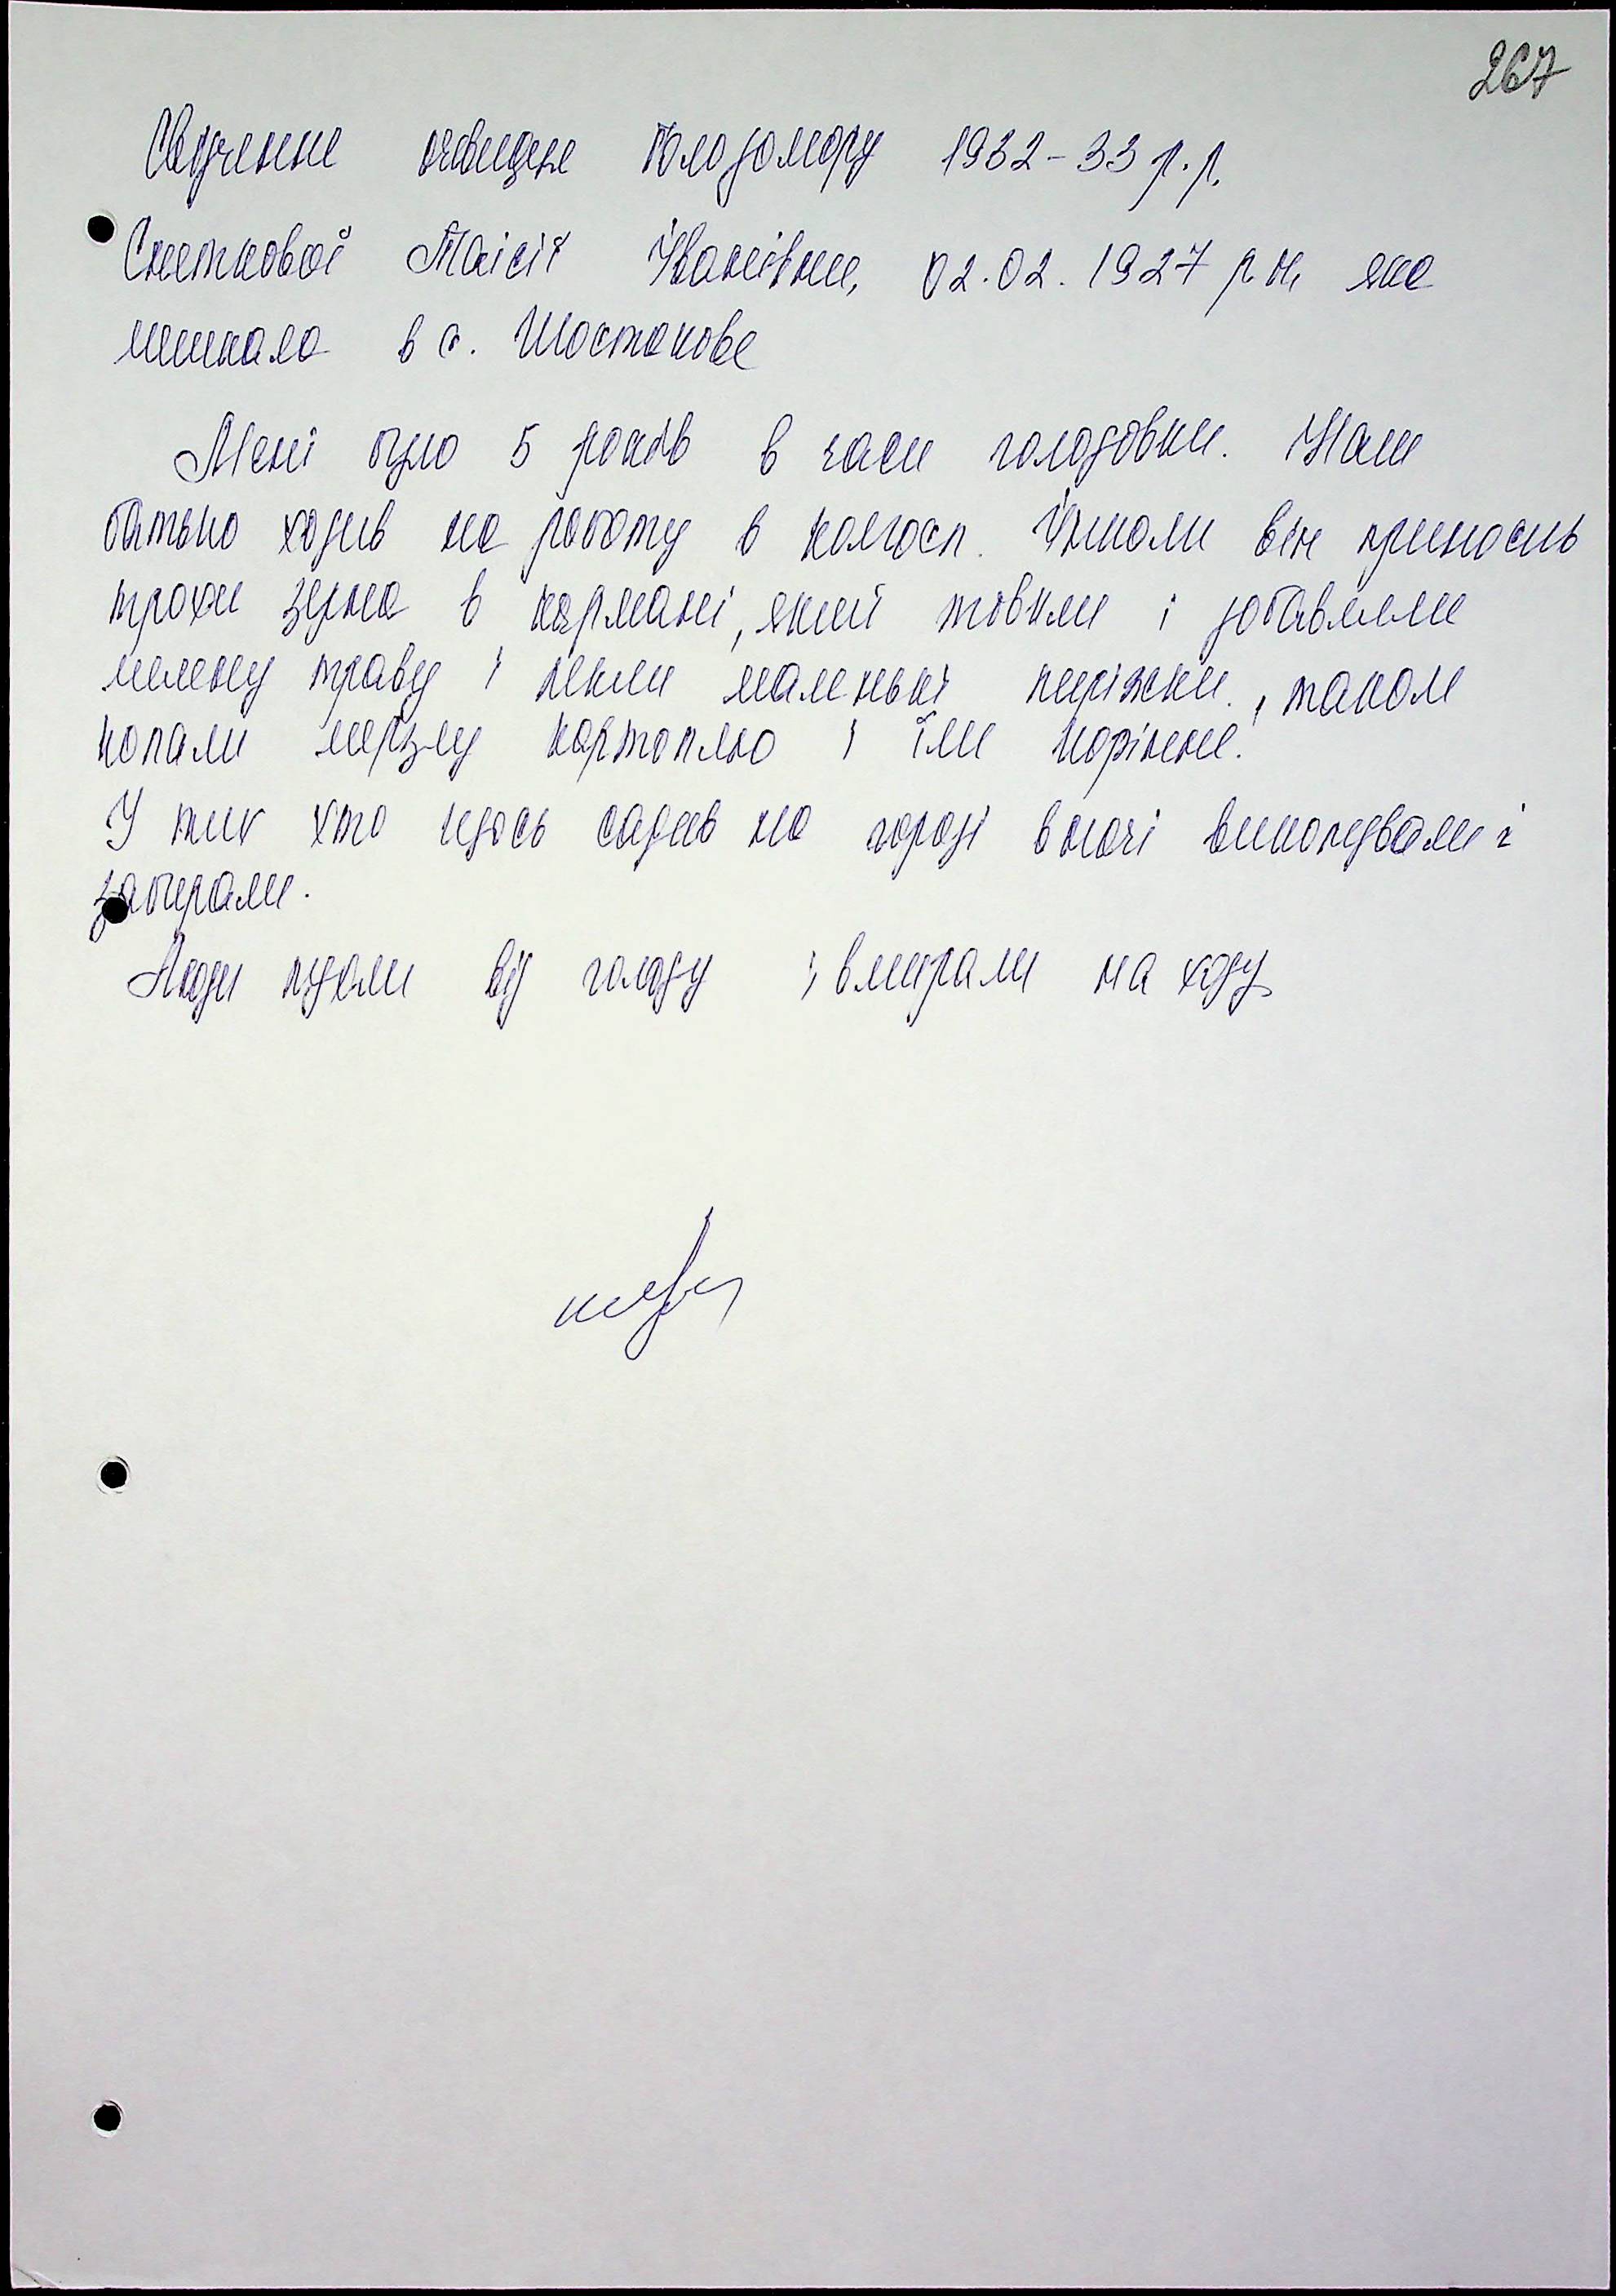 267
Свідчення очевидця Голодомору 1932-33 р.р.
Снєткової Таісії Іванівни, 02.02.1927 р.н, яка
мешкала в с. Шостакове
Мені було 5 років в часи голодовки. Наш
батько ходив на роботу в колгосп. Інколи він приносив
трохи зерна в кармані, який товкли і добавляли
мелену траву і пекли маленькі пиріжки, також
копали мерзлу картоплю і їли коріння.
У тих хто щось садив на городі вночі викопували і
забирали.
Люди пухли від голоду і вмирали на ходу